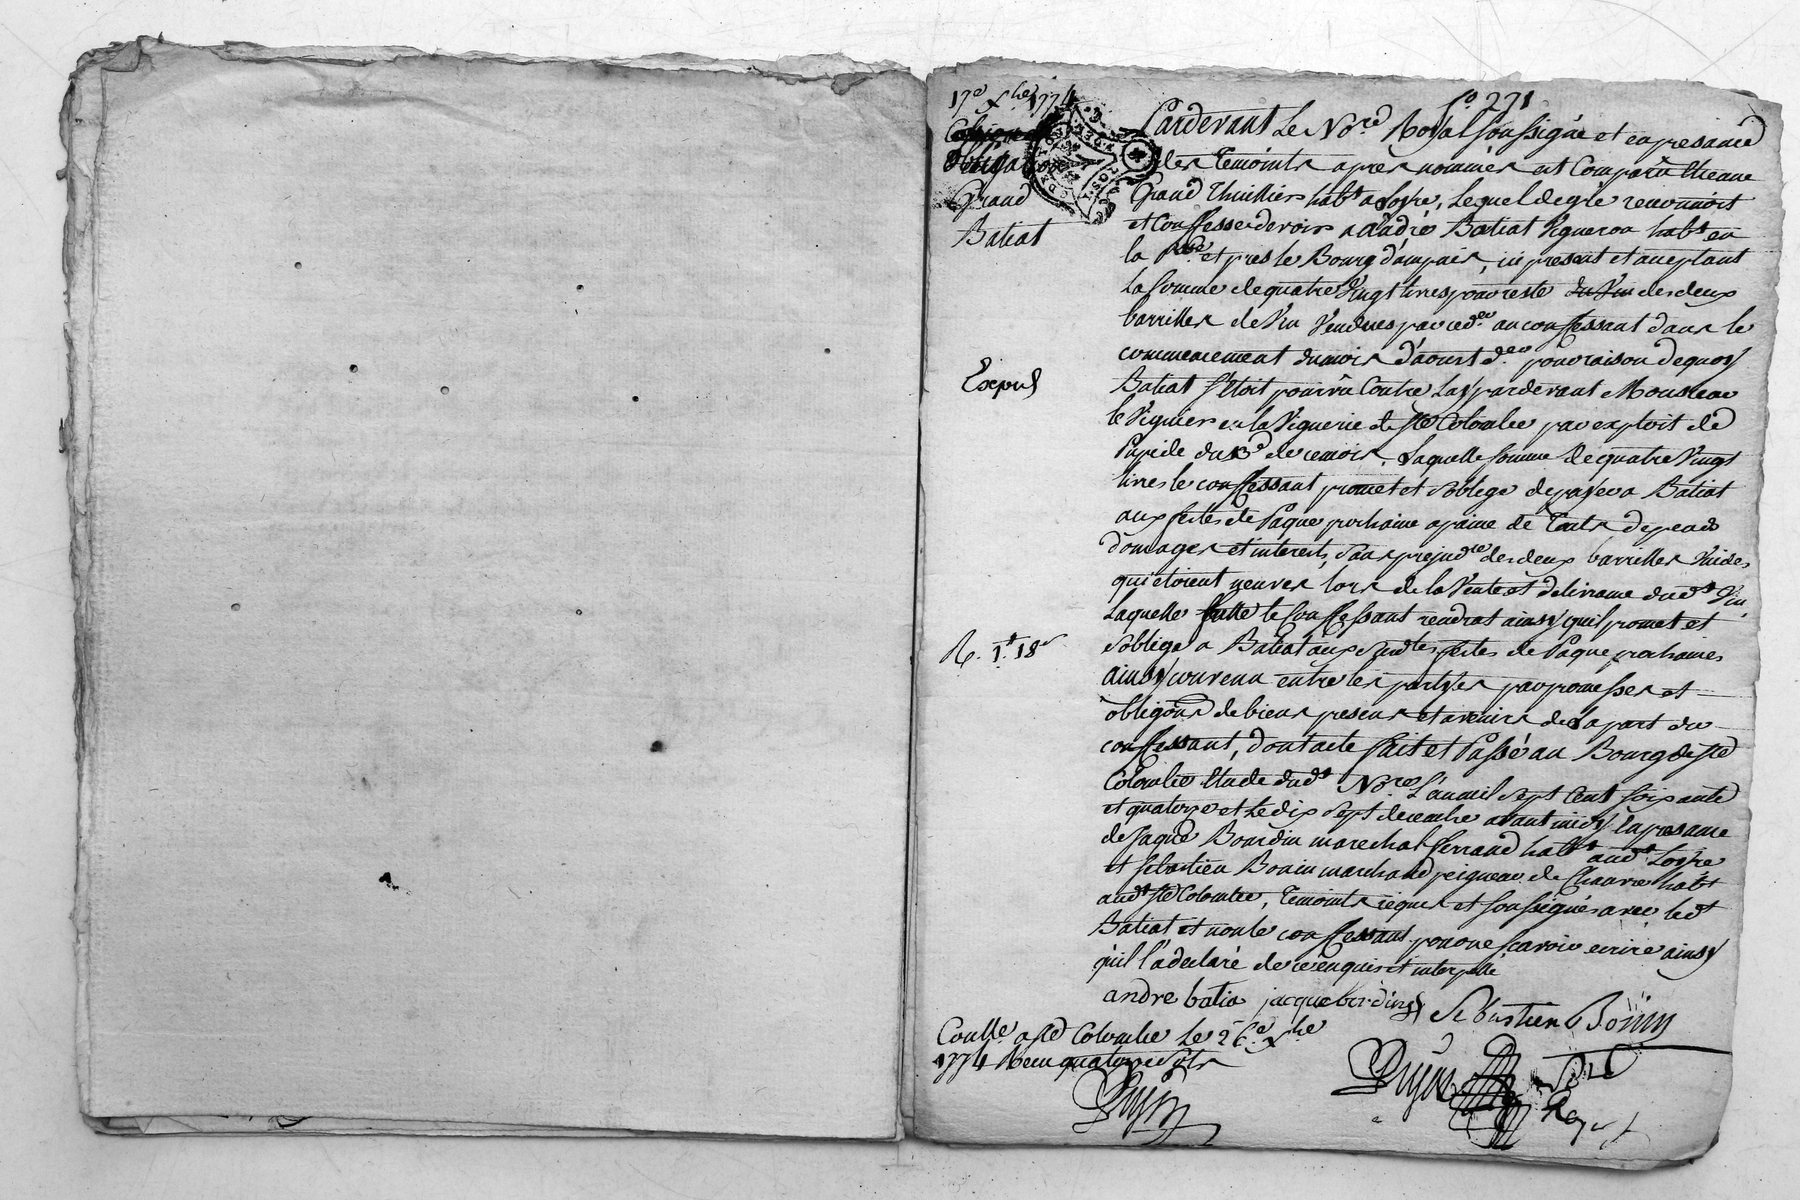 17e xbre 1774
obligaon
Grand
Batiat
Expié
R. 1tt 18s
fo 271
Pardevant Le Nore Royal soussigné et en presance
des temoints apres nommés est comparû Etienne
Grand thuillier habt a Soyre, Lequel de gré reconnoit
et confesse devoir a andré Batiat Vigneron habt en
la psse et pres le Bourg d'ampuis, icy present et aceptant
La somme de quatre Vingt livres pour reste des deux
barrilles de Vin Vendues par ced. er au confessant dans le
commencement du mois d'aoust d. er pour raison de quoy
Batiat s'etoit pourvû contre Luy pardevant Monsieur
le Viguier en la Viguerie de ste Colombe par exploit de
du 13e de ce mois. Laquelle somme de quatre Vingt
livres le confessant promet et s'oblige de payer a Batiat
aux fetes de Paque prochaine a paine de touts depens
domages et interests, sans prejudce des deux barrilles Vuides
qui etoient neuves lors de la Vente et delivrance dudt Vin,
Laquelle le confessant rendrat ainsy qu'il promet et
s'oblige a Batiat aux sudtes fetes de Paque prochaines
ainsy convenu entre les partyes par promesses et
obligons de biens presens et avenirs de La part du
confessant, dont acte fait et Passé au Bourg de ste
Colombe Etude dudt Nore L'an mil sept cent soixante
et quatorze et Le dix sept decembre avant midy En presance
de Jaque Bourdin marechal ferrand habt audt Soyre
et sebastien Bonin marchand peigneur de Chanvre habt
audt ste Colombe, temoints requis et soussignés avec ledt
Batiat et non le confessant pour ne scavoir ecrire ainsy
qu'il l'a declaré de ce enquis et interpellé
andre batia jacque bordin Sebastien Bonin
Conllé a ste Colombe le 26e xbre
1774 Recu quatorze sols